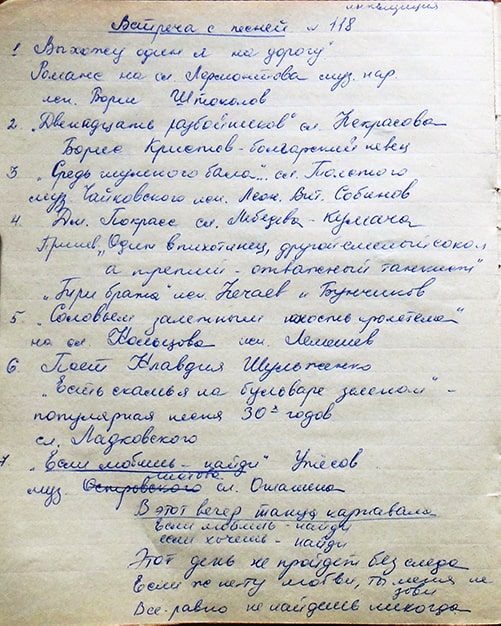 инквизиция
Встреча с песней № 118
1. "Выхожу один я на дорогу"
Романс на сл Лермонтова муз. нар.
исп. Борис Штоколов
2 "Двенадцать разбойников" сл. Некрасова
Борис Христов - болгарский певец
3 "Средь шумного бала"... сл. Толстого
муз Чайковского исп. Леон. Вит. Собинов
4 Дм. Покрасс сл. Лебедева - Кумача
"Один в пихотинец, другой смелый сокол
а третий - отважный танкист"
"Три брата" исп. Нечаев и Бунчиков
5 "Соловьем залетным юность пролетела"
на сл Кольцова исп. Лемешев
6 Поёт Клавдия Шульженко
"Есть скамья на бульваре зеленом" -
популярная песня 30х годов
сл. Ладковского
7. "Если любишь - найди" Утесов
муз. Островского сл. Ошанина
В этот вечер танца карнавала
Если любишь - найди
если хочешь - найди
Этот день не пройдет без следа
Если же нету любви, ты меня не
зови
Все равно не найдешь никогда